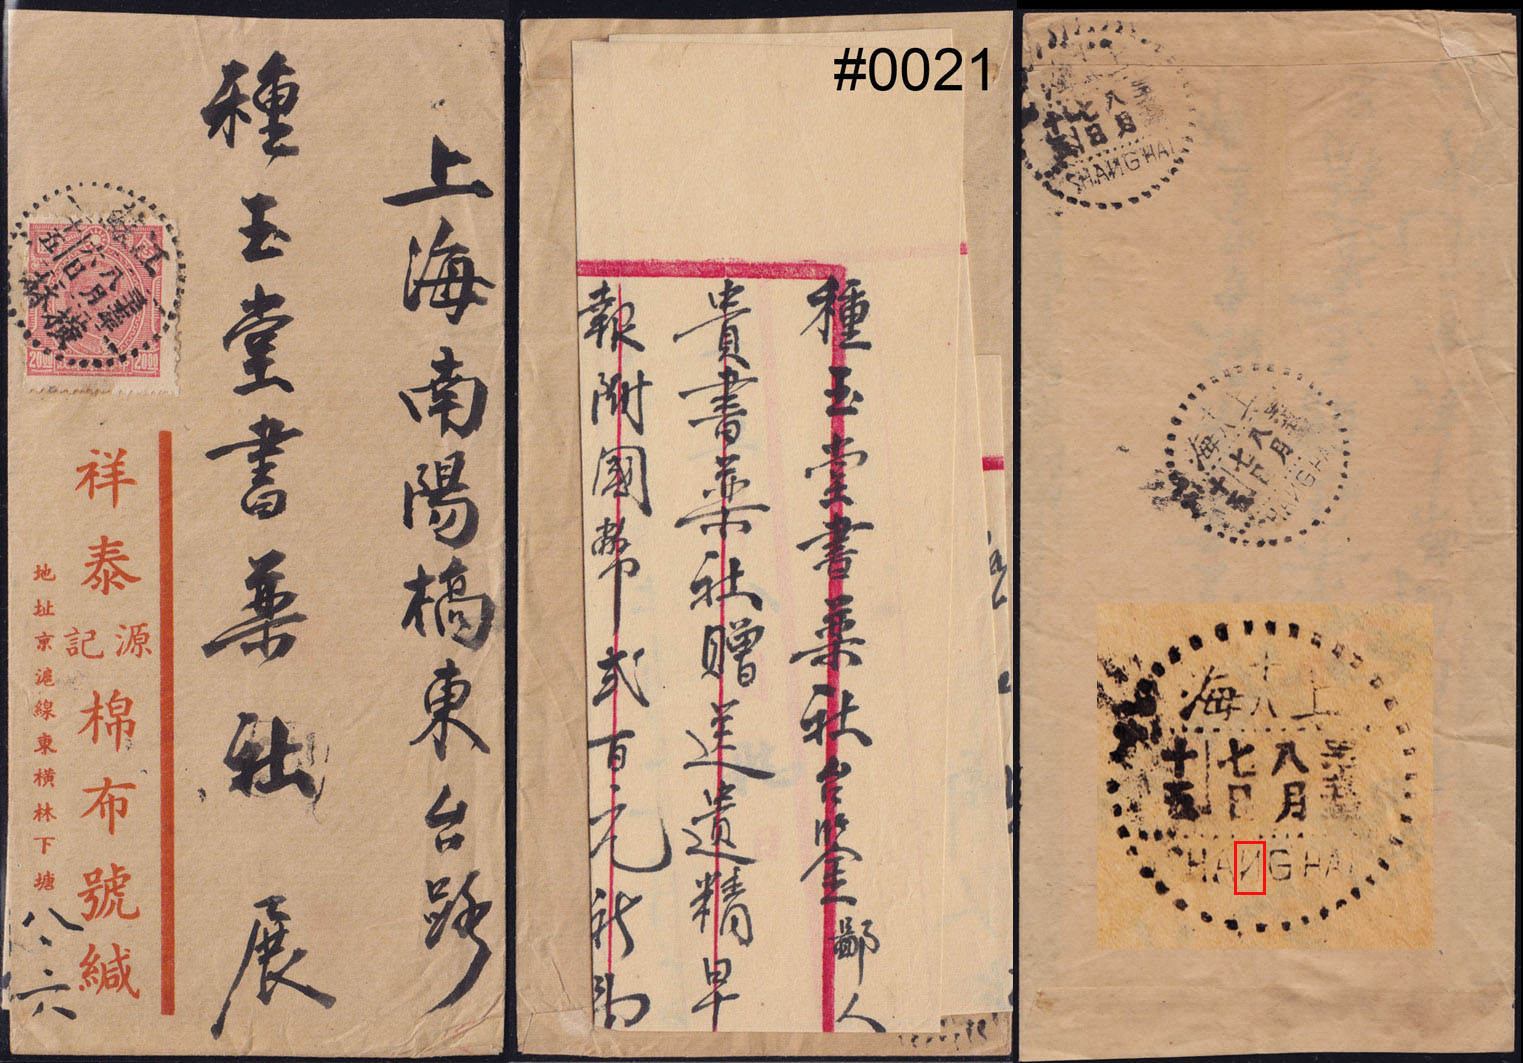 上海南陽橋東台路
種玉堂書葯社 展
祥泰
源記
棉布號緘
地址京滬線東橫林下塘
八.六
江蘇
八月
六日
橫林
20 00
20 00
#0021
種玉堂書葯社台鑒鄙人
貴書葯社贈送遺精早
報附國幣弍百元祈
上海
八月
七日
十五
SHANGHAI
上海
十八
八月
七日
十五
HANGHA
上海
十八
八月
七日
十五
HAИGHAI